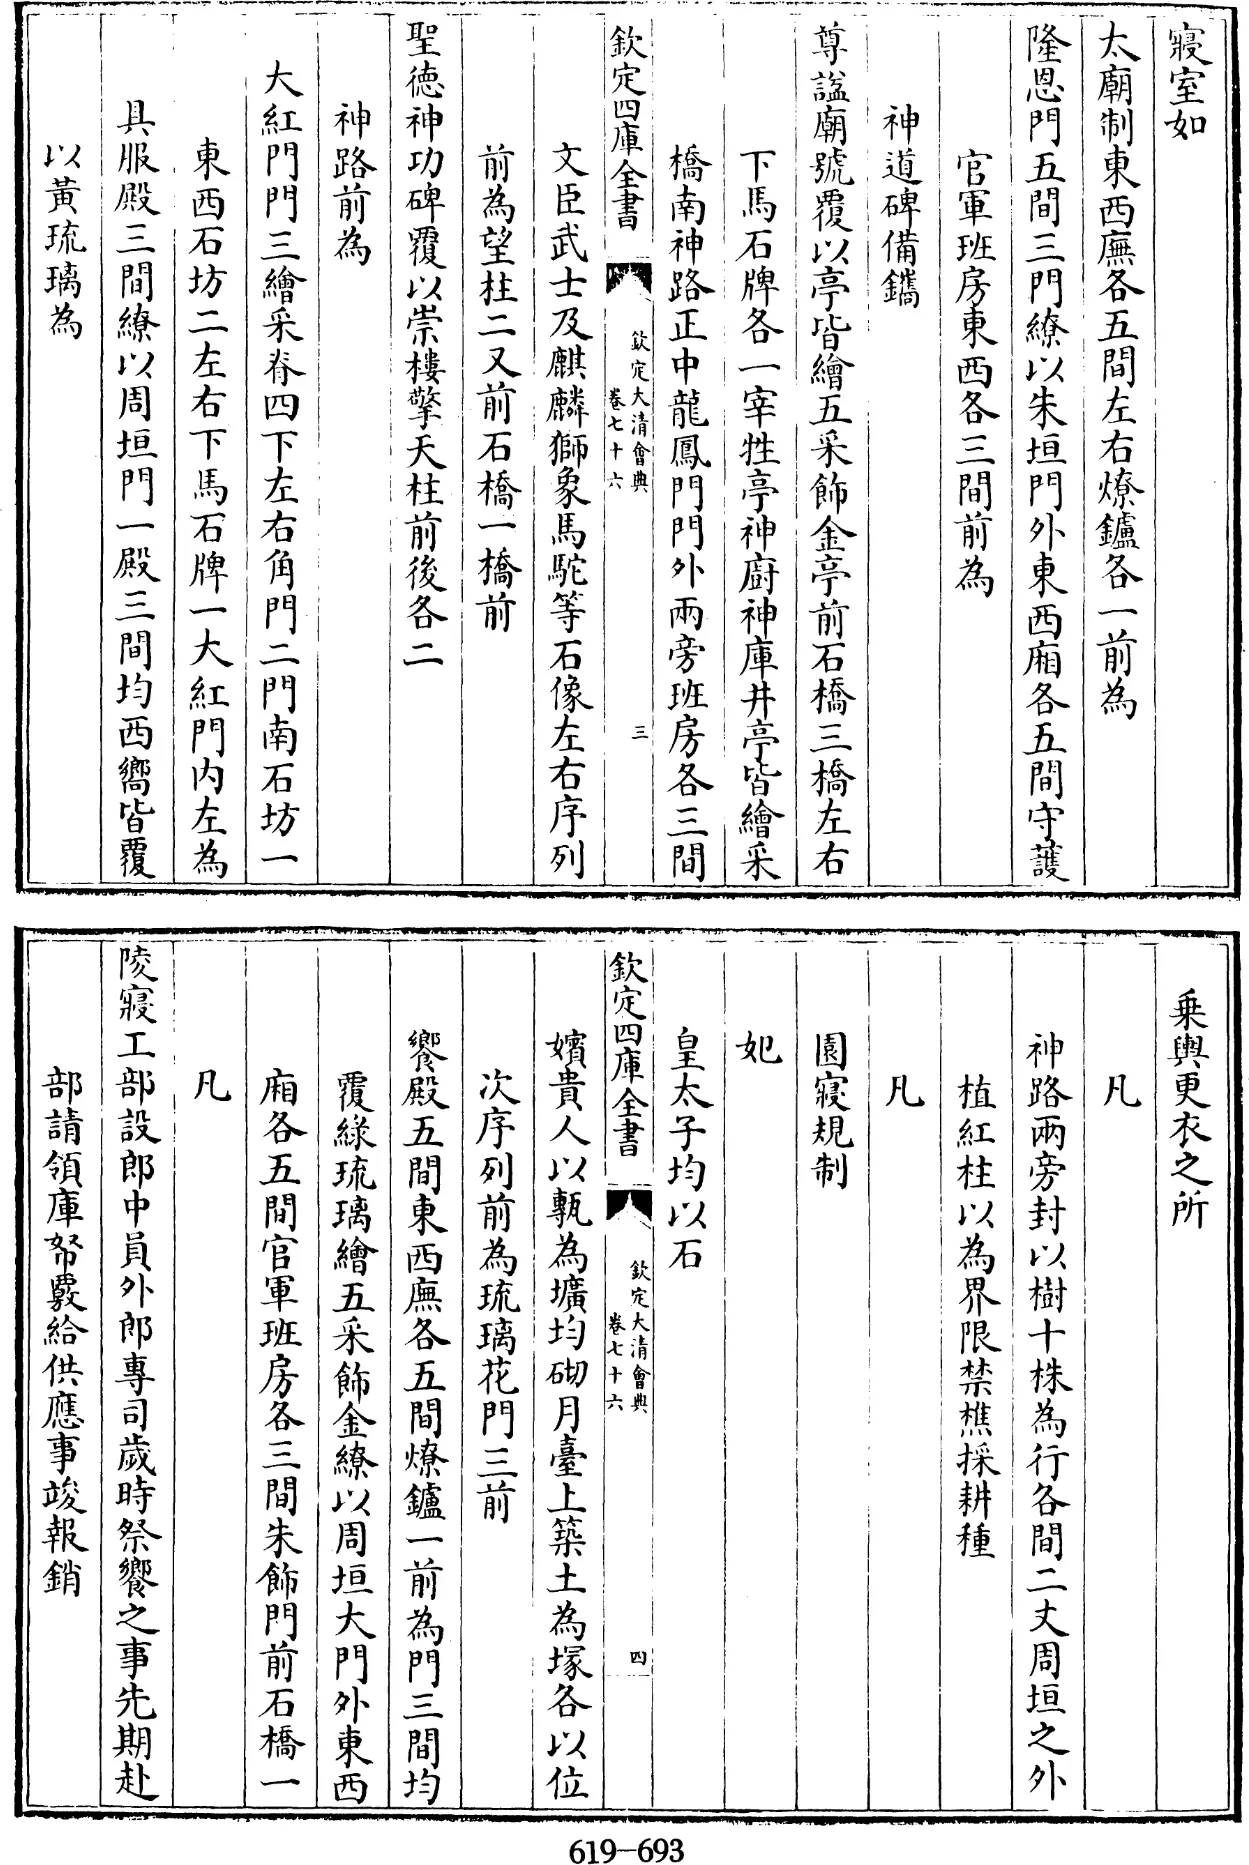 寢室如
太廟制東西廡各五間左右燎鑪各一前為
隆恩門五間三門繚以朱垣門外東西廂各五間守護
官軍班房東西各三間前為
神道碑備鐫
尊諡廟號覆以亭皆繪五采飾金亭前石橋三橋左右
下馬石牌各一宰牲亭神廚神庫井亭皆繪采
橋南神路正中龍鳳門門外兩旁班房各三間
欽定四庫全書
欽定大清會典
卷七十六
三
文臣武士及麒麟獅象馬駝等石像左右序列
前為望柱二又前石橋一橋前
聖德神功碑覆以崇樓擎天柱前後各二
神路前為
大紅門門三繪采脊四下左右角門二門南石坊一
東西石坊二左右下馬石牌一大紅門內左為
具服殿三間繚以周垣門一殿三間均西嚮皆覆
以黃琉璃為
乗輿更衣之所
凡
神路兩旁封以樹十株為行各間二丈周垣之外
植紅柱以為界限禁樵採耕種
凡
園寢規制
妃
皇太子均以石
欽定四庫全書
欽定大清會典
卷七十六
四
嬪貴人以甎為壙均砌月臺上築土為塚各以位
次序列前為琉璃花門三前
饗殿五間東西廡各五間燎鑪一前為門三間均
覆綠琉璃繪五采飾金繚以周垣大門外東西
廂各五間官軍班房各三間朱飾門前石橋一
凡
陵寢工部設郎中員外郎專司歲時祭饗之事先期赴
部請領庫帑覈給供應事竣報銷
619-693